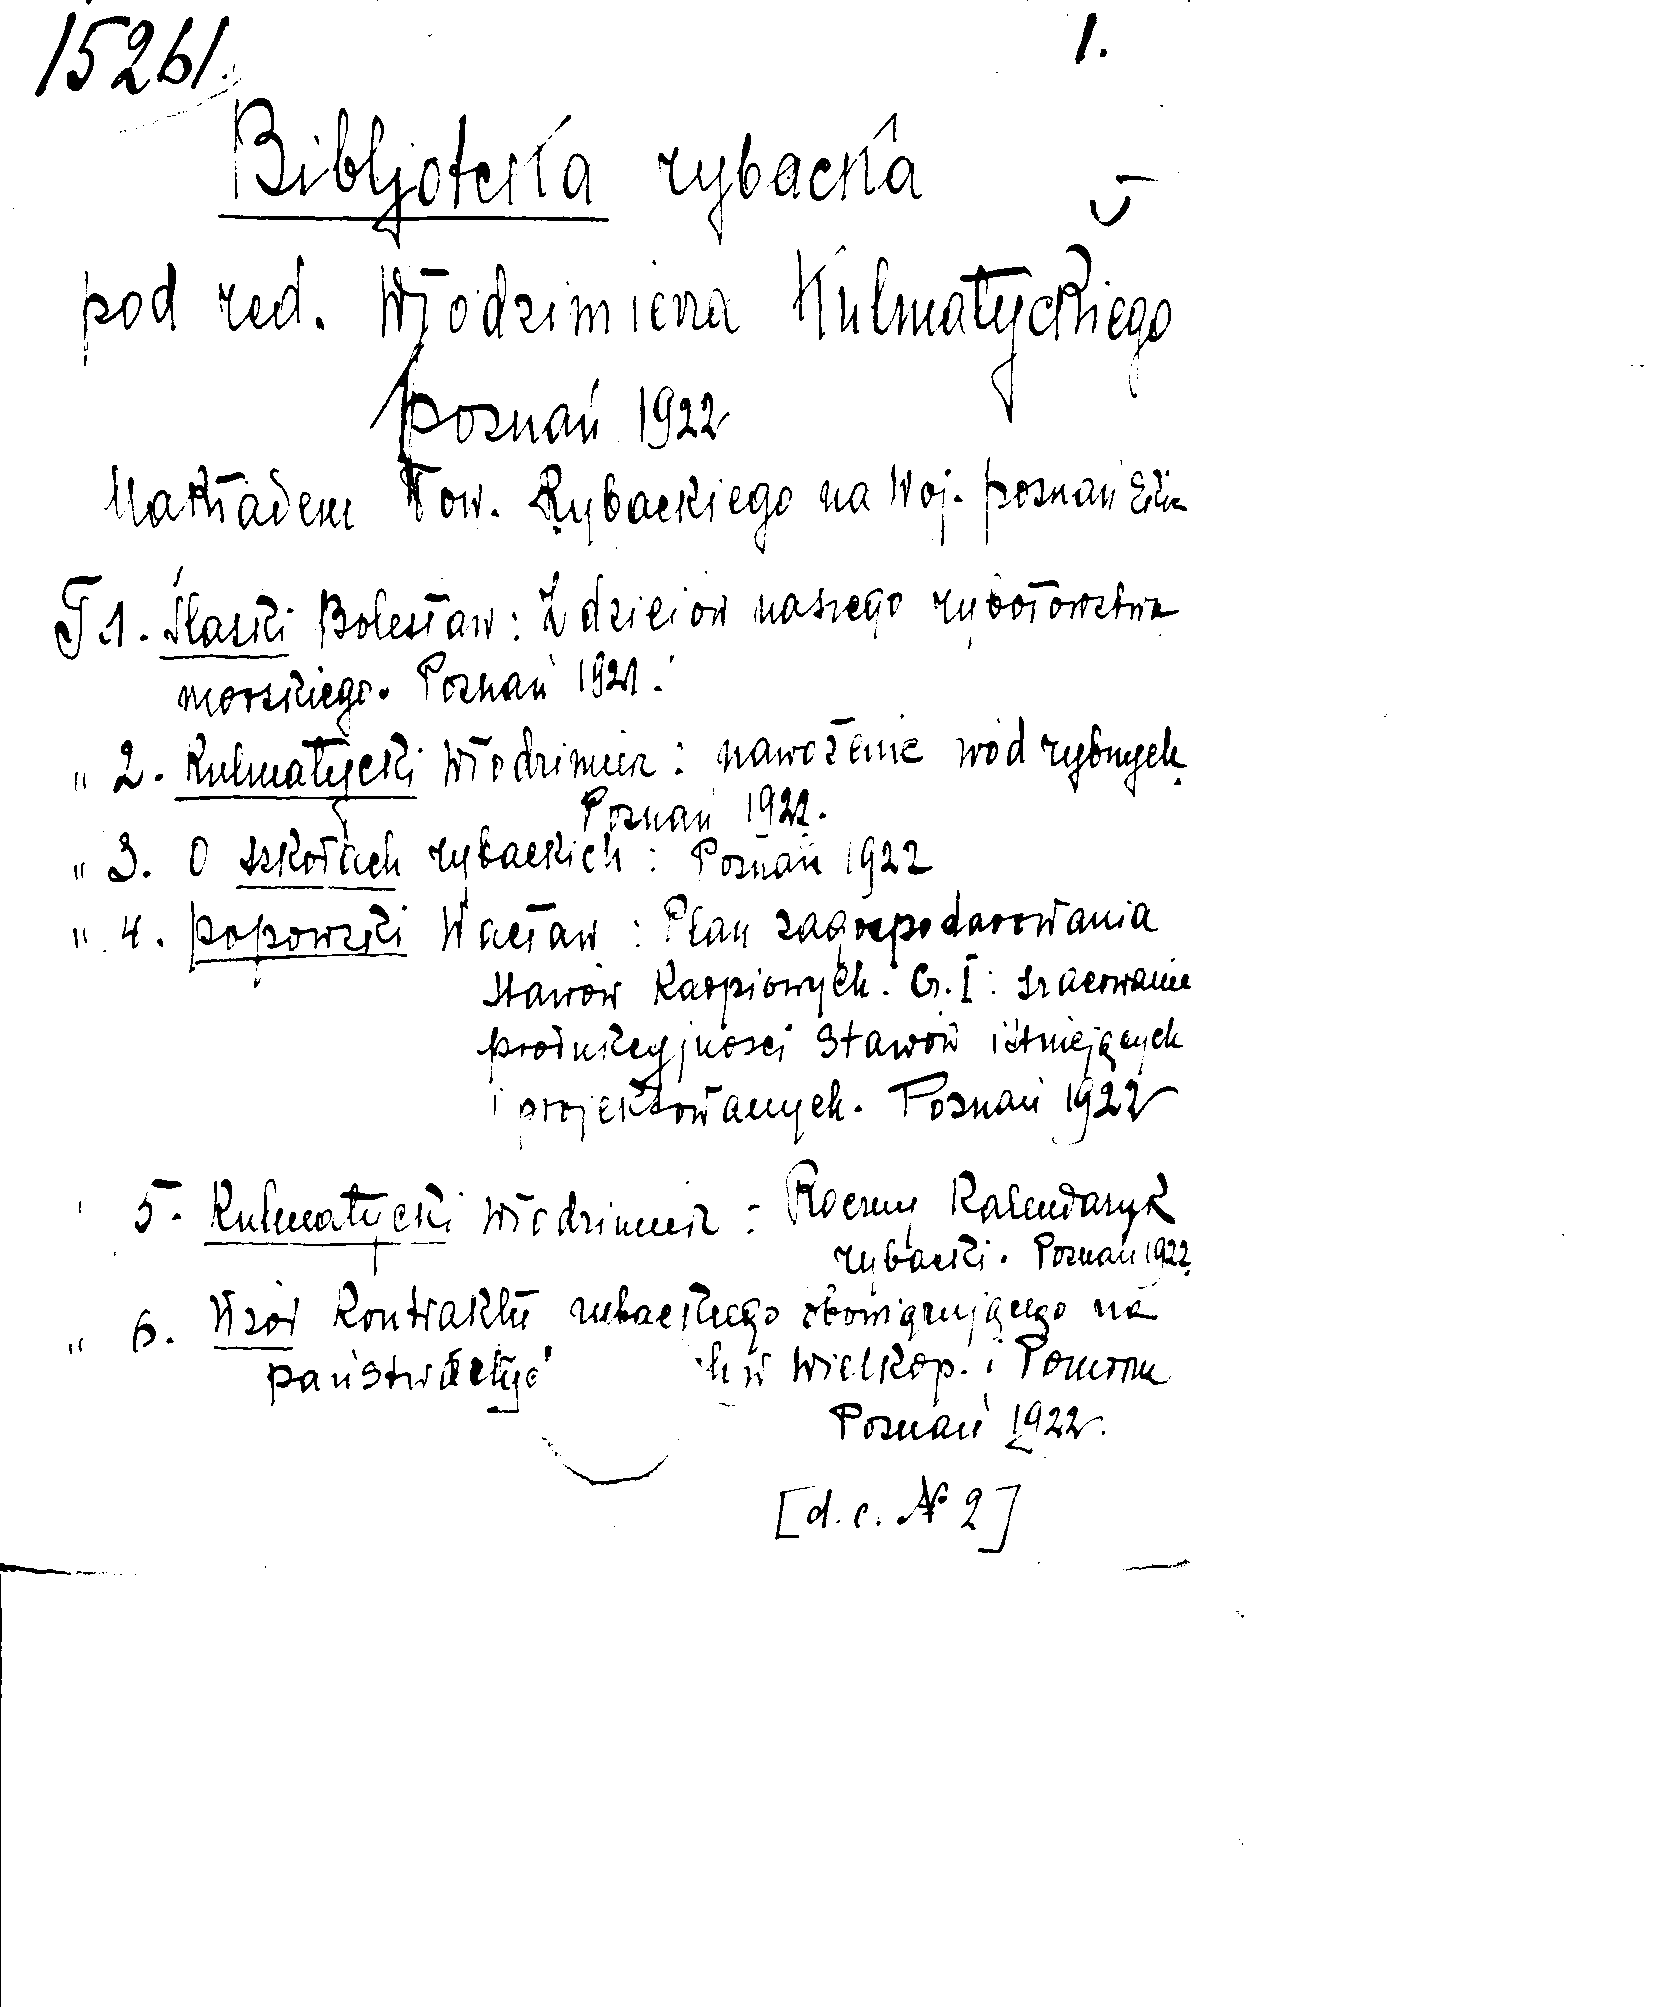 15261. 1.
Bibljoteka rybacka
pod red. Włodzimierza Kulmatyckiego
Poznań 1922
Nakładem Tow. Rybackiego na Woj. poznańskie
T 1. Ślaski Bolesław: Z dziejów naszego rybołowstwa
morskiego. Poznań 1921.
" 2. Kulmatycki Włodzimierz: nawożenie wód rybnych.
Poznań 1922.
" 3. O szkołach rybackich: Poznań 1922
" 4. Popowski Wacław: Plan zagospodarowania
stawów karpiowych. Cz. I: szacowanie
produkcyjności stawów istniejących
i projektowanych. Poznań 1922
" 5. Kulmatycki Włodzimierz: Roczny Kalendarzyk
rybacki. Poznań 1922
" 6. Wzór Kontraktu rybackiego obowiązującego na
w Wielkop. i Pomorzu
Poznań 1922.
[d.c. № 2]